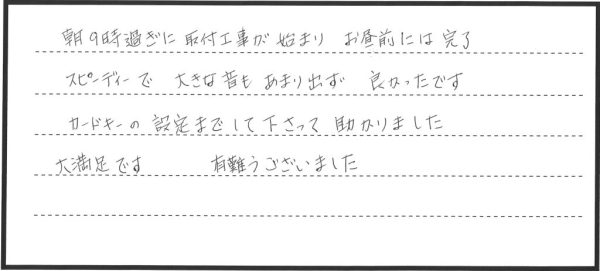 朝9時過ぎに 取付工事が 始まり お昼前には 完了
スピーディーで 大きな音も あまり出ず 良かったです
カードキーの 設定までして下さって 助かりました
大満足です 有難うございました